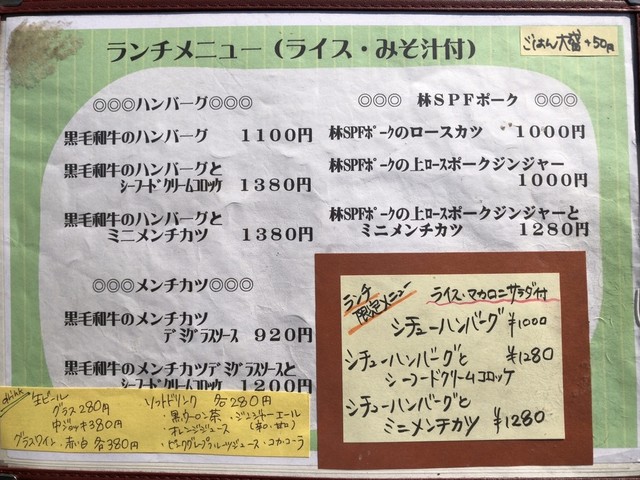 ランチメニュー（ライス・みそ汁付）
ごはん大盛+50円
◎◎◎ハンバーグ◎◎◎
黒毛和牛のハンバーグ 1100円
黒毛和牛のハンバーグと
シーフードクリームコロッケ 1380円
黒毛和牛のハンバーグと
ミニメンチカツ 1380円
◎◎◎メンチカツ◎◎◎
黒毛和牛のメンチカツ
デミグラスソース 920円
黒毛和牛のメンチカツデミグラスソースと
シーフードクリームコロッケ 1200円
◎◎◎ 林SPFポーク ◎◎◎
林SPFポークのロースカツ 1000円
林SPFポークの上ロースポークジンジャー
1000円
林SPFポークの上ロースポークジンジャーと
ミニメンチカツ 1280円
ランチ
限定メニュー
ライス・マカロニサラダ付
シチューハンバーグ ¥1000
シチューハンバーグと ¥1280
シーフードクリームコロッケ
シチューハンバーグと
ミニメンチカツ ¥1280
drink
生ビール
グラス280円
中ジョッキ380円
グラスワイン・赤・白 各380円
ソフトドリンク 各280円
・黒ウーロン茶 ・ジンジャーエール
・オレンジジュース (辛口・甘口)
・ピンクグレープフルーツジュース・コカ・コーラ